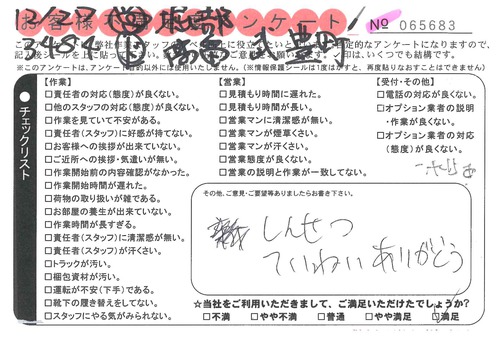 お客様 アンケート
No 065683
12/27
※このアンケートは、アンケート目的以外には使用いたしません。(※情報保護シールは1度はがすと、再度貼りなおすことはできません)
チェックリスト
【作業】
□責任者の対応(態度)が良くない。
□他のスタッフの対応(態度)が良くない。
□作業を見ていて不安がある。
□責任者(スタッフ)に好感が持てない。
□お客様への挨拶が出来ていない。
□ご近所への挨拶・気遣いが無い。
□作業開始前の内容確認がなかった。
□作業開始時間が遅れた。
□荷物の取り扱いが雑である。
□お部屋の養生が出来ていない。
□作業時間が長すぎる。
□責任者(スタッフ)に清潔感が無い。
□責任者(スタッフ)が汗くさい。
□トラックが汚い。
□梱包資材が汚い。
□運転が不安(下手)である。
□靴下の履き替えをしてない。
□スタッフにやる気がみられない。
【営業】
□見積もり時間に遅れた。
□見積もり時間が長い。
□営業マンに清潔感が無い。
□営業マンが煙草くさい。
□営業マンが汗くさい。
□営業態度が良くない。
□営業の説明と作業が一致してない。
【受付・その他】
□電話の対応が良くない。
□オプション業者の説明
・作業が良くない。
□オプション業者の対応
(態度)が良くない。
その他、ご意見・ご要望等ありましたらお書き下さい。
しんせつ
ていねい ありがとう
☆当社をご利用いただきまして、ご満足いただけたでしょうか?
□不満 □やや不満 □普通 □やや満足 □満足